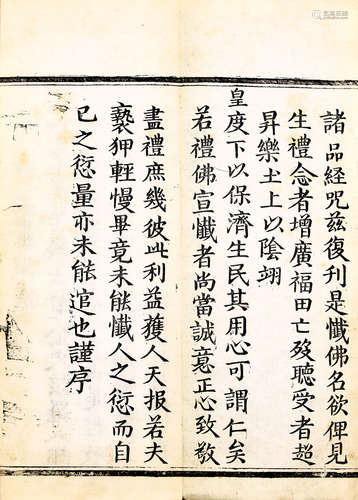 諸品經咒茲復刊是懺佛名欲俾見
生禮念者增廣福田亡歿聽受者超
昇樂土上以陰翊
皇度下以保濟生民其用心可謂仁矣
若禮佛宣懺者尚當誠意正心致敬
盡禮庶幾彼此利益獲人天報若夫
褻狎輕慢畢竟未能懺人之愆而自
己之愆量亦未能逭也謹序